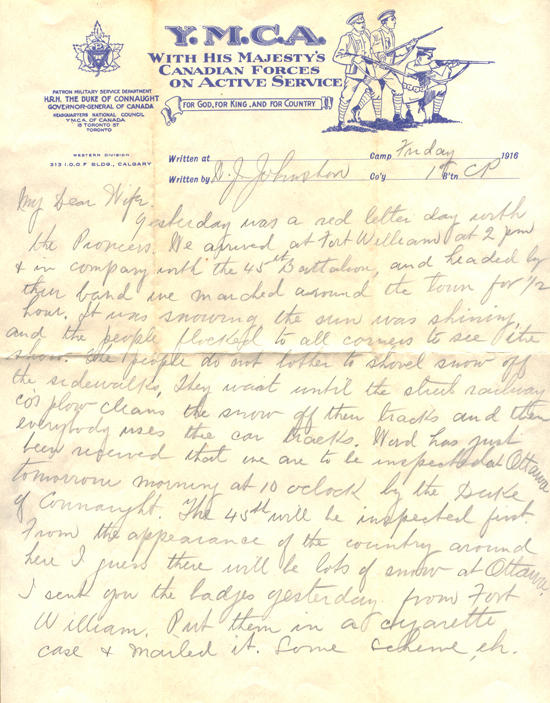 Y.M.C.A.
WITH HIS MAJESTY'S
CANADIAN FORCES
ON ACTIVE SERVICE
FOR GOD, FOR KING, AND FOR COUNTRY
PATRON MILITARY SERVICE DEPARTMENT
H.R.H. THE DUKE OF CONNAUGHT
GOVERNOR-GENERAL OF CANADA
HEADQUARTERS NATIONAL COUNCIL
Y.M.C.A. OF CANADA
15 TORONTO ST
TORONTO
WESTERN DIVISION
313 I.O.O.F BLDG., CALGARY
Written at Camp Friday 1916
Written by D. J. Johnston Co'y 1st B'tn CP
My Dear Wife.
Yesterday was a red letter day with
the Pioneers. We arrived at Fort William at 2 pm
& in company with the 45th Battalion, and headed by
their band we marched around the town for 1/2
hour. It was snowing the sun was shining,
and the people flocked to all corners to see the
show. The people do not bother to shovel snow off
the sidewalks, they wait until the street railway
co's plow cleans the snow off their tracks and then
everybody uses the car tracks. Word has just
been received that we are to be inspected at Ottawa
tomorrow morning at 10 oclock by the Duke
of Connaught. The 45th will be inspected first.
From the appearance of the country around
here I guess there will be lots of snow at Ottawa.
I sent you the badges yesterday from Fort
William. Put them in a cigarette
case & mailed it. Some scheme, eh.